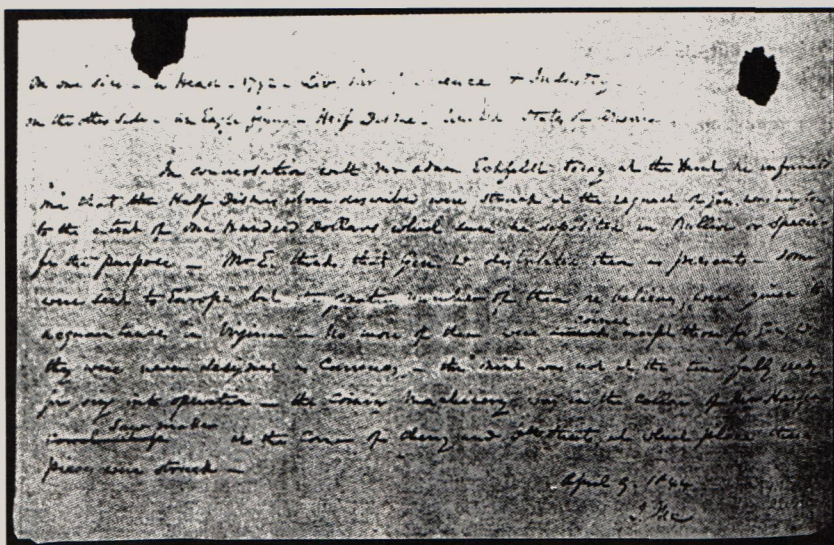 On one side - a Head - 1792 - Lib. Par. of Science & Industry -
on the other side - an Eagle flying - Half Disme - United States of America
In conversation with Mr Adam Eckfeldt today at the Mint he informed
me that the Half Dismes above described were struck at the request of Gen. Washington
to the extent of One Hundred Dollars which sum he deposited in Bullion or Specie
for the purpose - Mr E. thinks that Gen. W. distributed them as presents - Some
were sent to Europe but the greater number of them he believes, were given to
acquaintances in Virginia - No more of them were coined except those for Gen. W.
they were never designed as Currency - the Mint was not at the time fully ready
for going into operation - the coining Machinery was in the cellar of Mr Harper
Saw maker at the Corner of Cherry and 6th Street, at which place these
pieces were struck -
April 9. 1844
J Mc